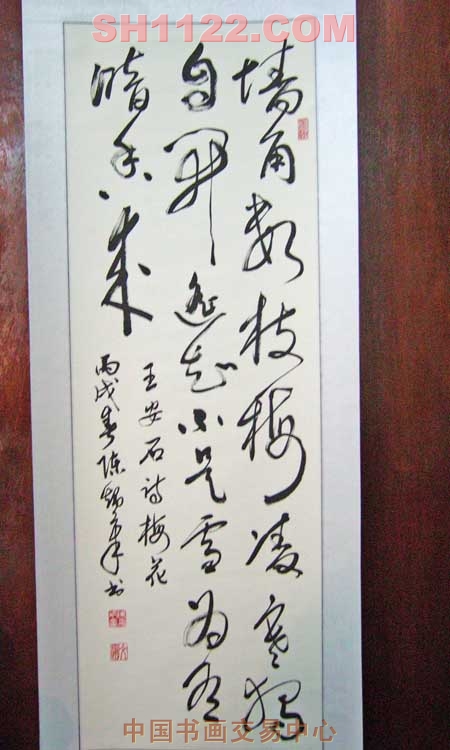 SH1122.COM
墙角数枝梅凌寒独
自开遥知不是雪为有
暗香来
王安石诗梅花
丙戌春陈书
中国书画交易中心